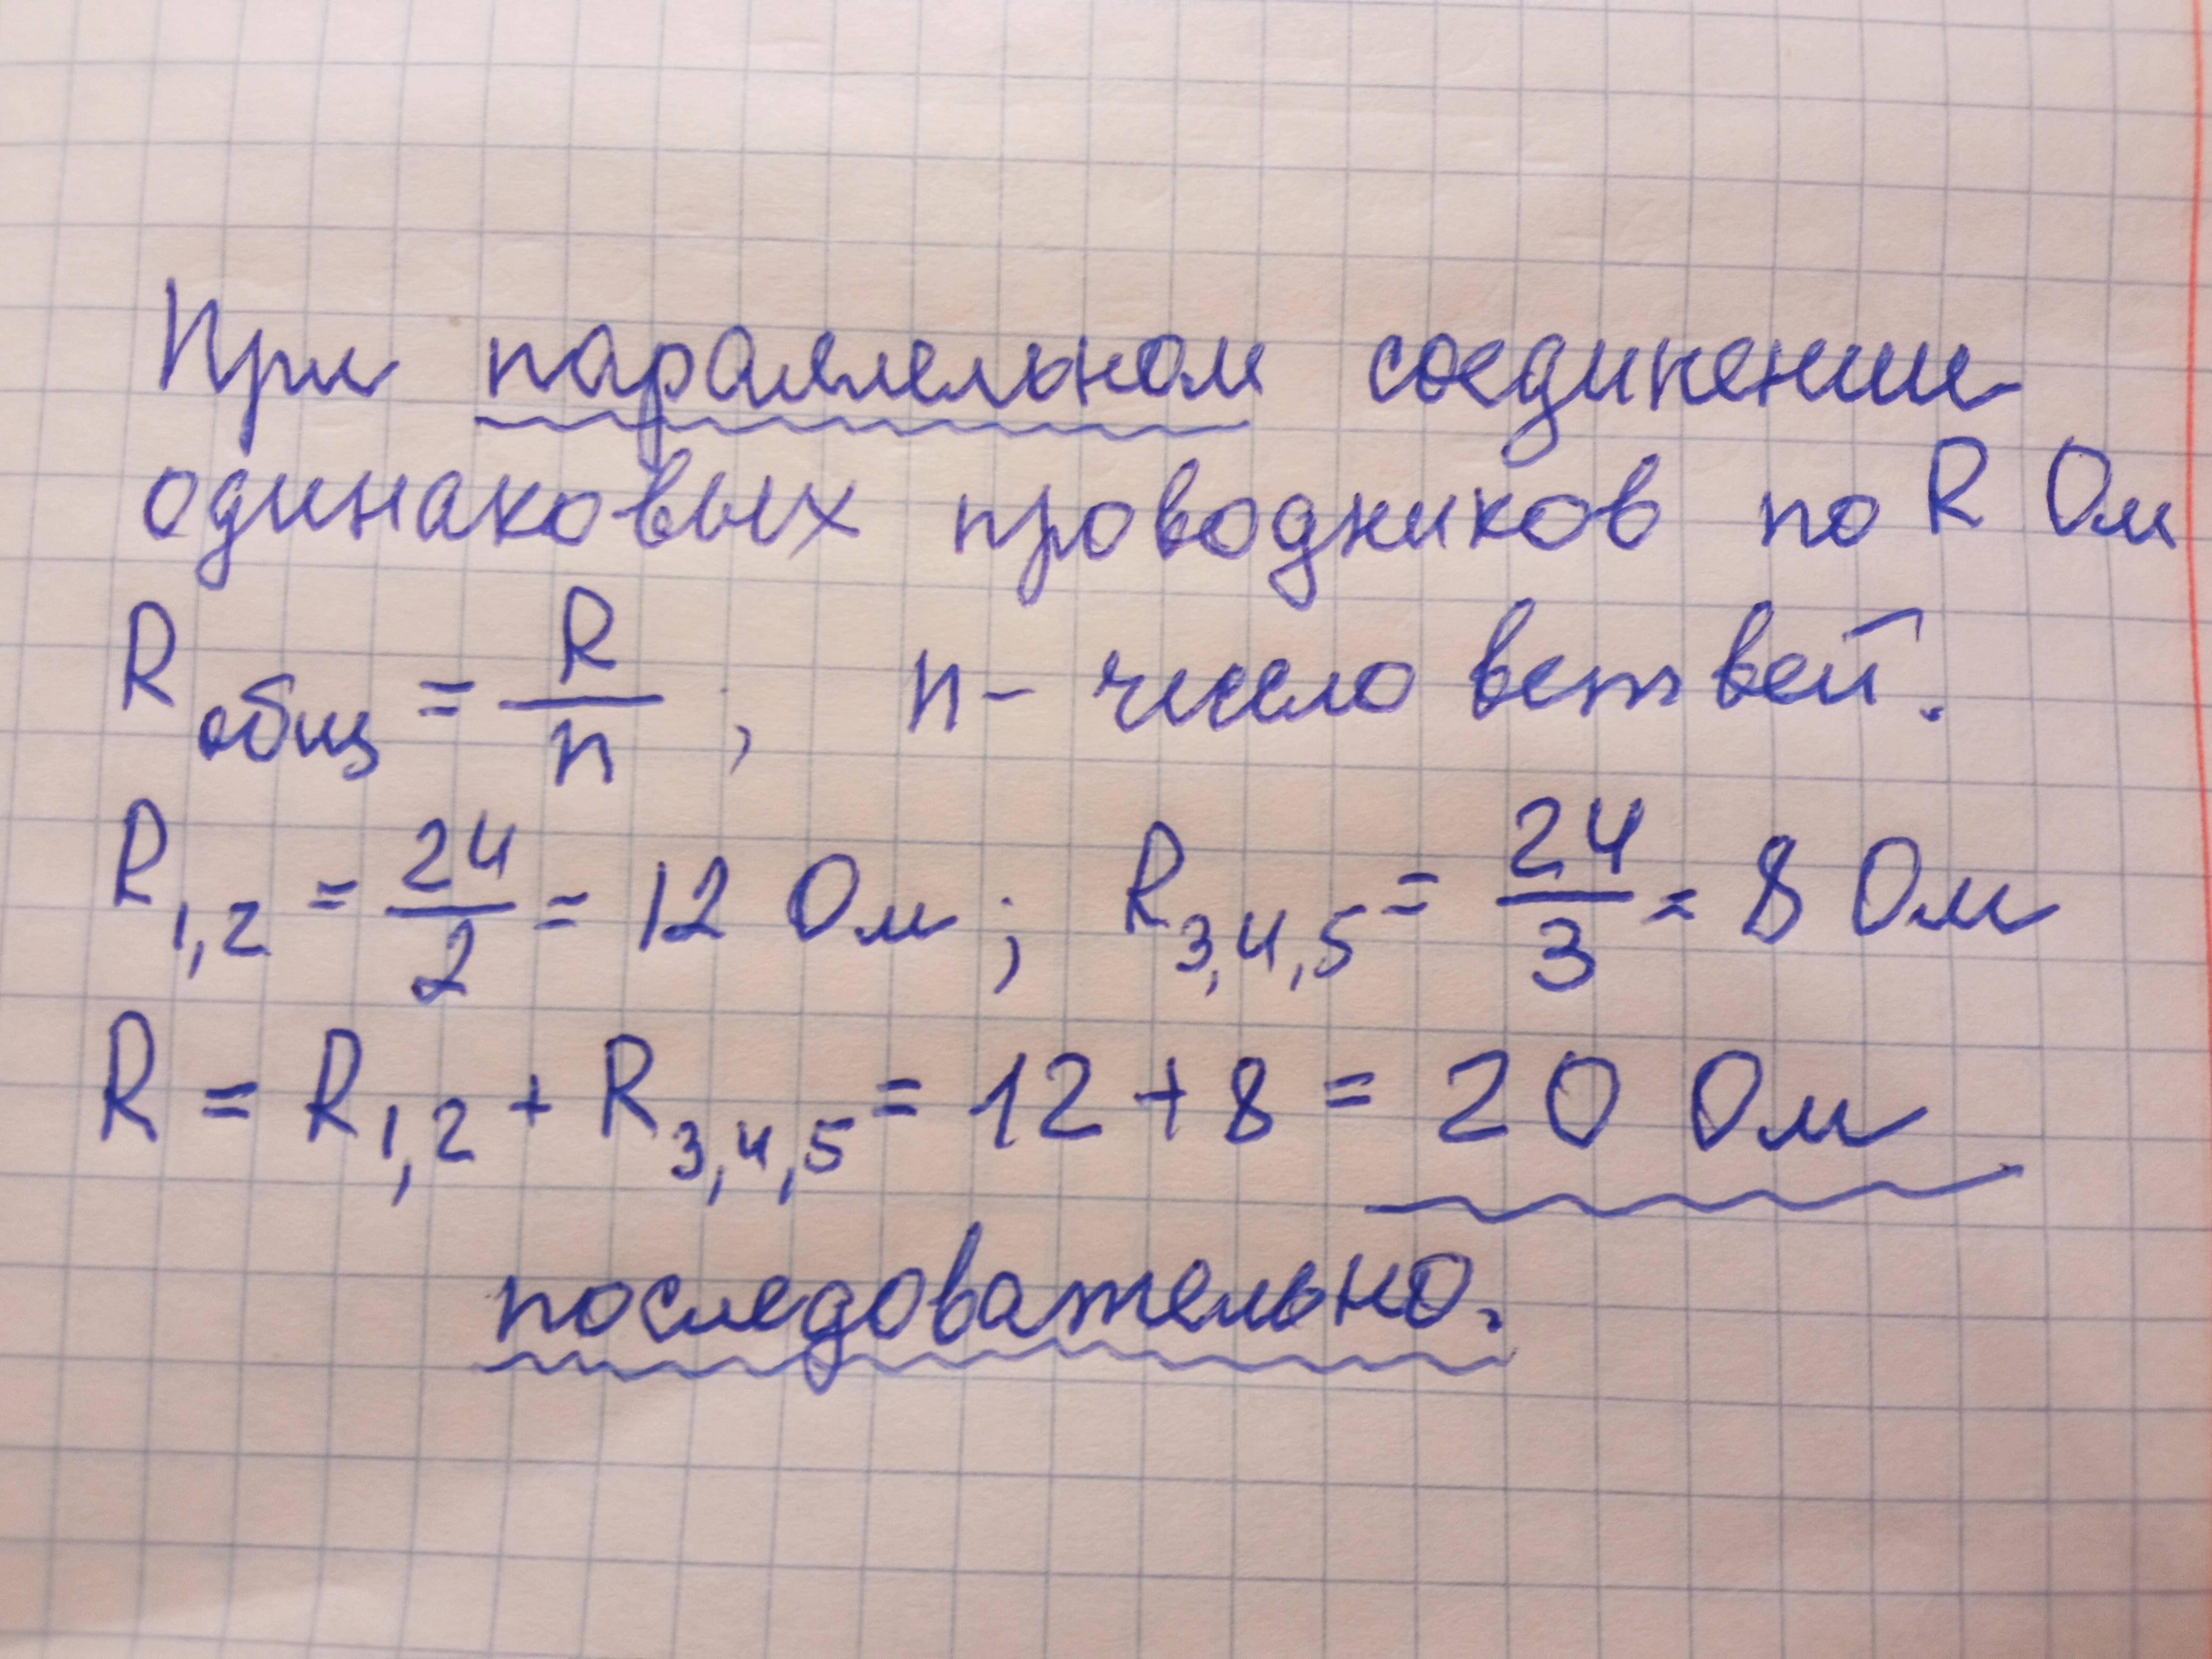 При параллельном соединении
одинаковых проводников по R Ом
R общ = R/n ; n - число ветвей.
R1,2 = 24/2 = 12 Ом ; R3,4,5 = 24/3 = 8 Ом
R = R1,2 + R3,4,5 = 12 + 8 = 20 Ом
последовательно.